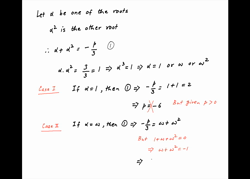 Let α be one of the roots
α² is the other root
∴ α + α² = -p/3 ①
α.α² = 3/3 = 1 ⇒ α³ = 1 ⇒ α = 1 or ω or ω²
Case I If α = 1, then ① ⇒ -p/3 = 1+1 = 2
⇒ p = -6 But given p > 0
Case II If α = ω, then ① ⇒ -p/3 = ω + ω²
But 1+ω+ω² = 0
⇒ ω + ω² = -1
⇒